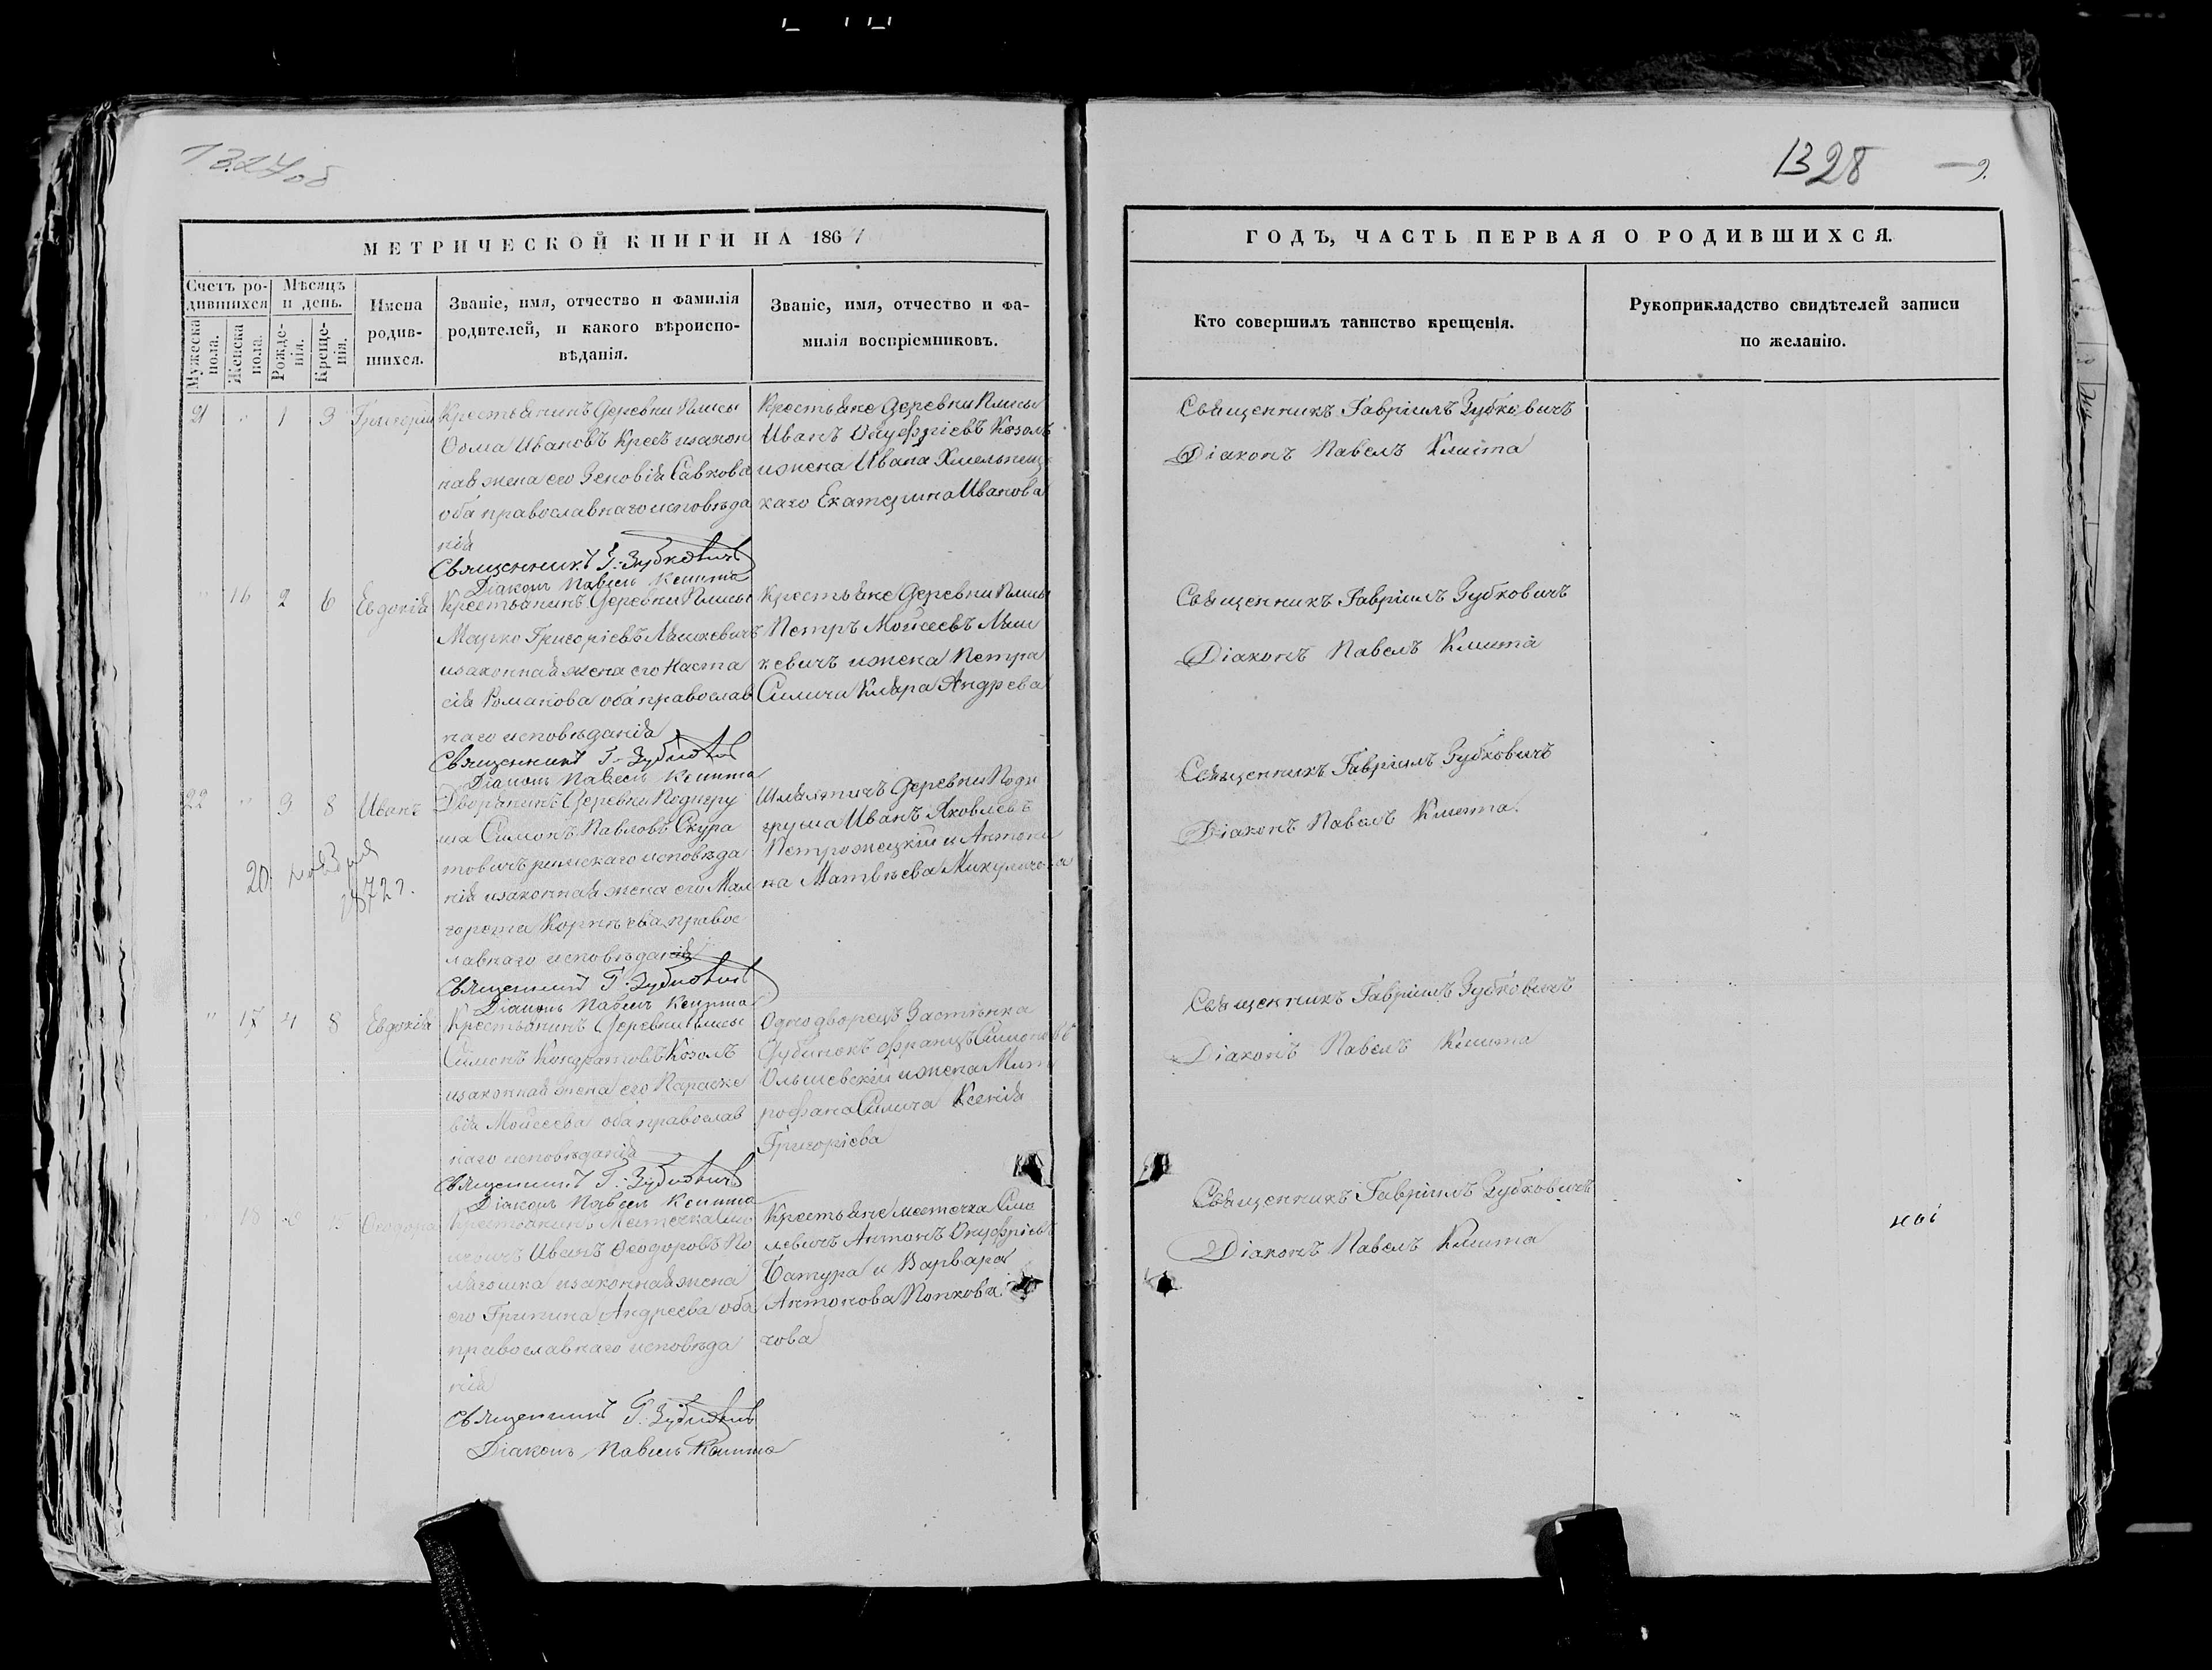 1327об
1328
9.
МЕТРИЧЕСКОЙ КНИГИ НА 1861
ГОДЪ, ЧАСТЬ ПЕРВАЯ О РОДИВШИХСЯ.
Счетъ ро-
дившихся
Мѣсяцъ
и день.
Мужеска
пола.
Женска
пола.
Рожде-
нія.
Креще-
нія.
Имена
родив-
шихся.
Званіе, имя, отчество и фамилія
родителей, и какого вѣроиспо-
вѣданія.
Званіе, имя, отчество и фа-
милія воспріемниковъ.
Кто совершилъ таинство крещенія.
Рукоприкладство свидѣтелей записи
по желанію.
21 " 1 3 Григорій
Крестьянинъ деревни
Ѳома Ивановъ изакон
ная жена его Зеновія Савкова
оба православнаго исповѣда
нія
Священникъ Г. Зубковичъ
Діаконъ Павелъ Кмита
Крестьяне деревни
Иванъ Онуфріевъ Козолъ
и жена Ивана Хмельниц
каго Екатерина Иванова
Священникъ Гавріилъ Зубковичъ
Діаконъ Павелъ Кмита
" 16 2 6 Евдокія
Крестьянинъ деревни
Марко Григоріевъ
изаконная жена его Наста
сія Романова оба православ
наго исповѣданія
Священникъ Г. Зубковичъ
Діаконъ Павелъ Кмита
Крестьяне деревни
Петръ Мойсеевъ
кевичъ и жена Петра
Силичи Андрева
Священникъ Гавріилъ Зубковичъ
Діаконъ Павелъ Кмита
22 " 3 8 Иванъ
20
1872 г.
Дворянинъ деревни Подгру
ша Симонъ Павловъ Скура
товичъ римскаго исповѣда
нія изаконная жена его Мал
горета Корнѣева правос
лавнаго исповѣданія
Священникъ Г. Зубковичъ
Діаконъ Павелъ Кмита
Шляхтичъ деревни
груша Иванъ Яковлевъ
Петрожецкій и Антони
на Матвѣева
Священникъ Гавріилъ Зубковичъ
Діаконъ Павелъ Кмита.
" 17 4 8 Евдокія
Крестьянинъ деревни
Симонъ Кондратовъ Козолъ
изаконная жена его Параске
вія Мойсеева оба православ
наго исповѣданія
Священникъ Г. Зубковичъ
Діаконъ Павелъ Кмита
Однодворецъ Застѣнка
Францъ Симоновъ
Ольшевскій и жена Мит
рофана Силича Ксенія
Григоріева
Священникъ Гавріилъ Зубковичъ
Діаконъ Павелъ Кмита
18 Ѳеодора
Крестьянинъ Местечка
Иванъ Ѳеодоровъ
изаконная жена
его Грипина Андреева оба
православнаго исповѣда
нія
Священникъ Г. Зубковичъ
Діаконъ Павелъ Кмита
Крестьяне местечка Сми
ловичъ Антонъ Онуфріевъ
Батура и Варвара
Антонова
Священникъ Гавріилъ Зубковичъ
Діаконъ Павелъ Кмита